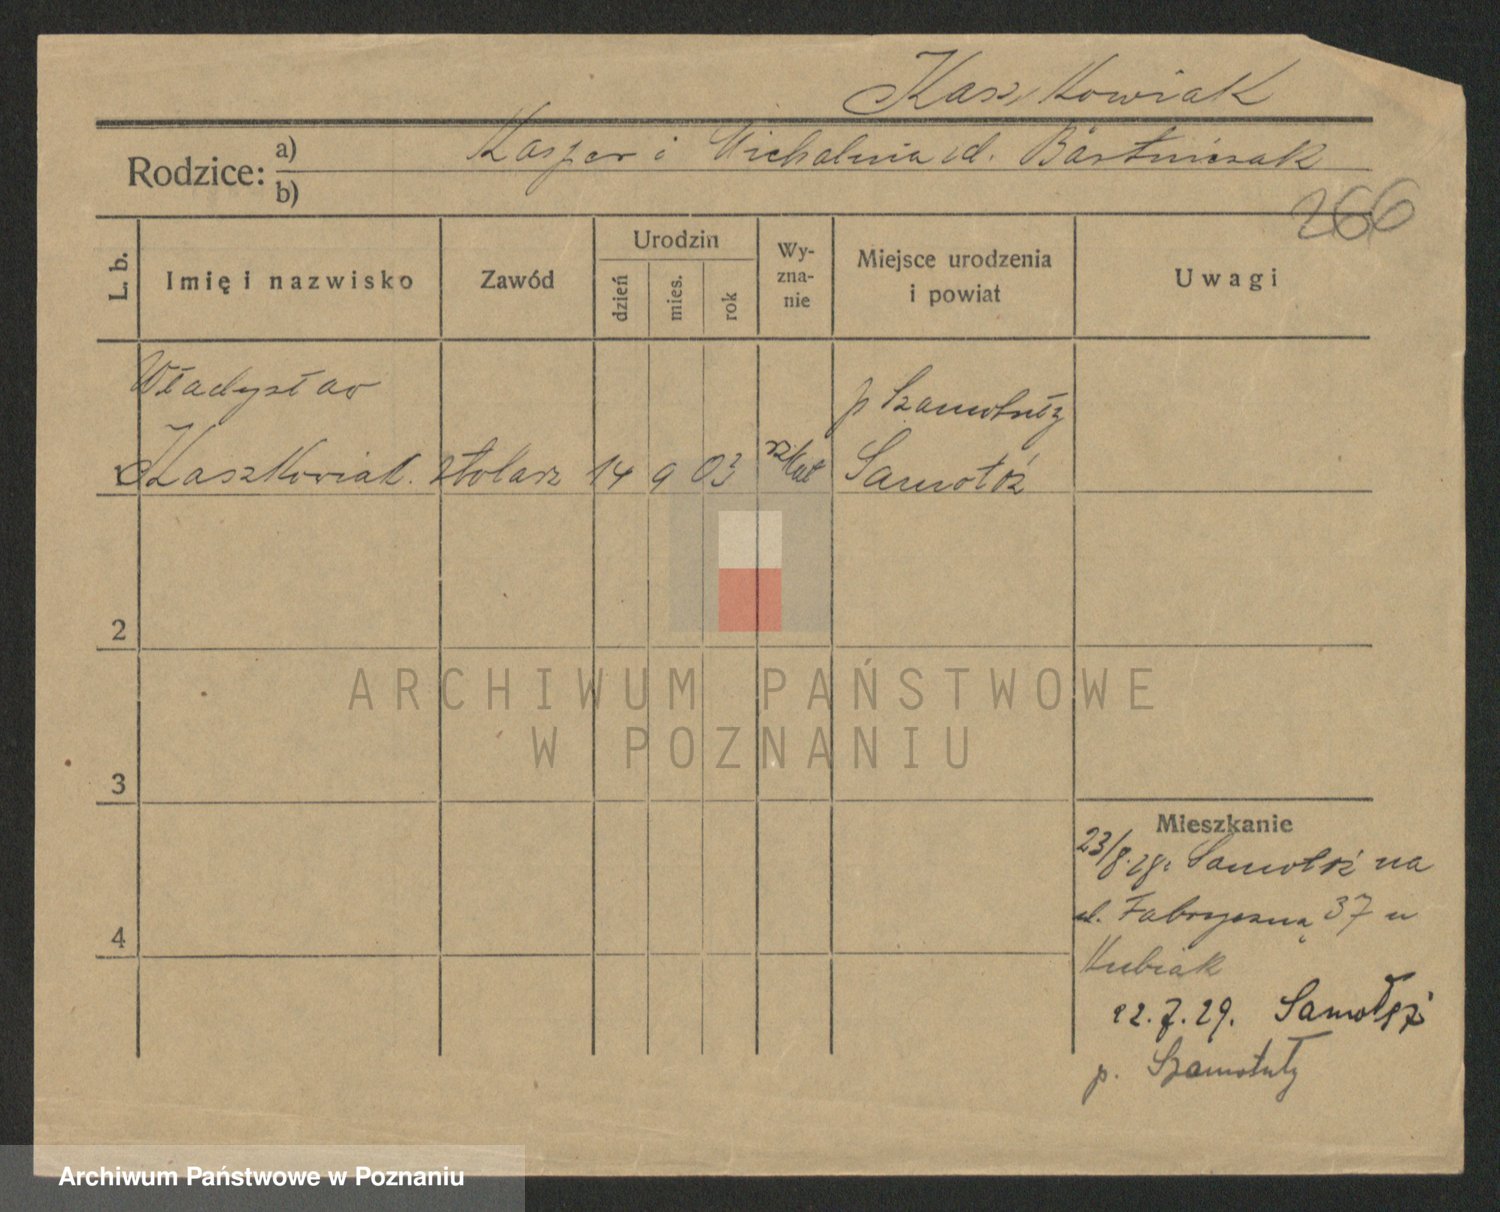 Kaszkowiak
Rodzice: a) Kasper i Michalina d. Bartniczak
b)
266
L. b.
Imię i nazwisko
Zawód
Urodzin
dzień
mies.
rok
Wy-
zna-
nie
Miejsce urodzenia
i powiat
Uwagi
Władysław
Kaszkowiak. stolarz 14 9 03 rz/kat
p Szamotuły
Samołęż
2
3
4
Mieszkanie
23/8.28. Samołęż na
ul. Fabryczną 37 u
Kubiak
22.7.29. Samołęż
p. Szamotuły
ARCHIWUM PAŃSTWOWE
W POZNANIU
Archiwum Państwowe w Poznaniu